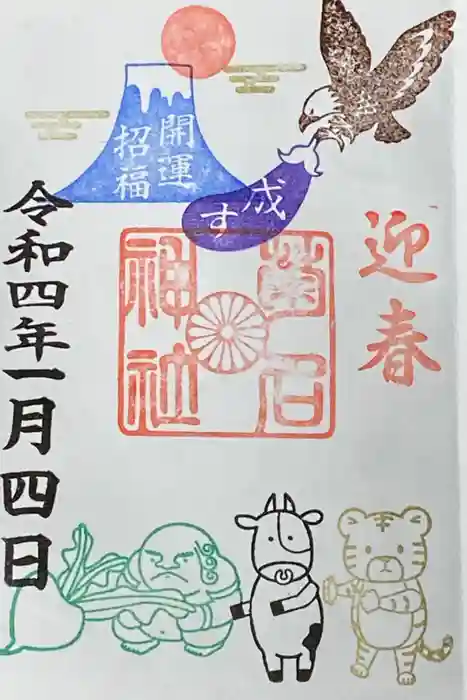 開運
招福
成す
迎春
菊石
神社
令和四年一月四日